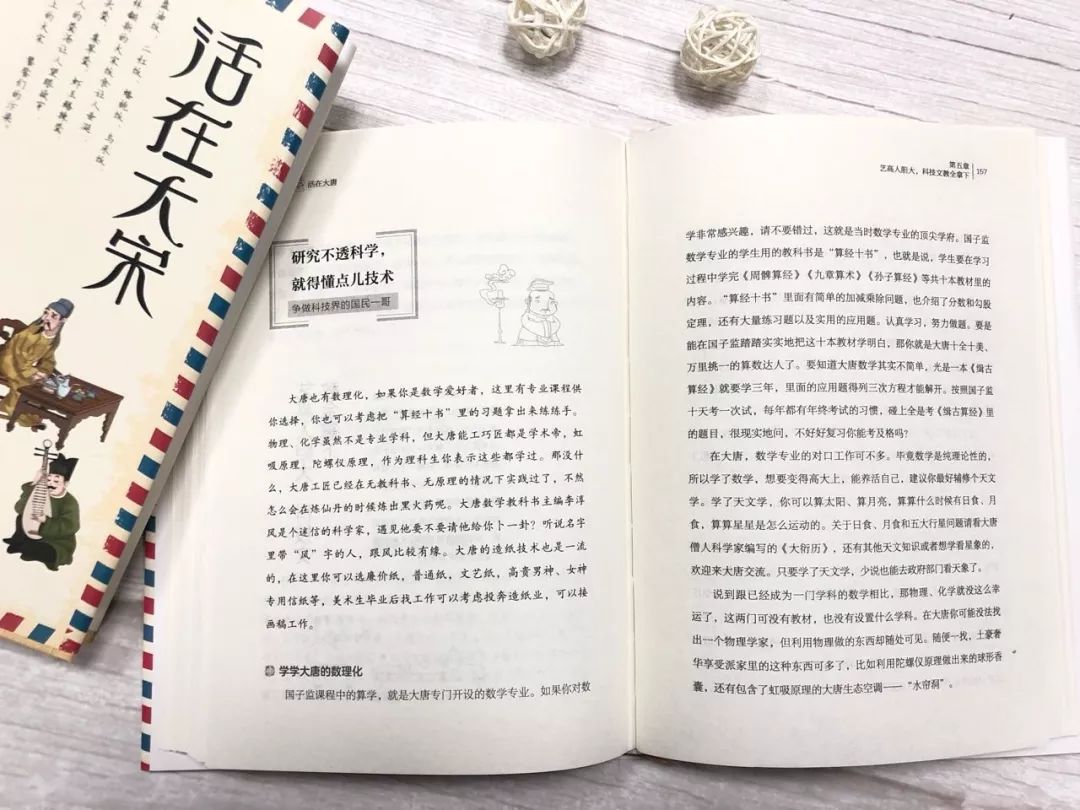 活在大宋
活在大唐
研究不透科学，
就得懂点儿技术
争做科技界的国民一哥
大唐也有数理化，如果你是数学爱好者，这里有专业课程供
你选择，你也可以考虑把“算经十书”里的习题拿出来练练手。
物理、化学虽然不是专业学科，但大唐能工巧匠都是学术帝，虹
吸原理，陀螺仪原理，作为理科生你表示这些都学过。那没什
么，大唐工匠已经在无教科书、无原理的情况下实践过了，不然
怎么会在炼仙丹的时候炼出黑火药呢。大唐数学教科书主编李淳
风是个迷信的科学家，遇见他要不要请他给你卜一卦？听说名字
里带“风”字的人，跟风比较有缘。大唐的造纸技术也是一流
的，在这里你可以选廉价纸，普通纸，文艺纸，高贵男神、女神
专用信纸等，美术生毕业后找工作可以考虑投奔造纸业，可以接
画稿工作。
学学大唐的数理化
国子监课程中的算学，就是大唐专门开设的数学专业。如果你对数
第五章
艺高人胆大，科技文教全拿下
157
学非常感兴趣，请不要错过，这就是当时数学专业的顶尖学府。国子监
数学专业的学生用的教科书是“算经十书”，也就是说，学生要在学习
过程中学完《周髀算经》《九章算术》《孙子算经》等共十本教材里的
内容。“算经十书”里面有简单的加减乘除问题，也介绍了分数和勾股
定理，还有大量练习题以及实用的应用题。认真学习，努力做题。要是
能在国子监踏踏实实地把这十本教材学明白，那你就是大唐十全十美、
万里挑一的算数达人了。要知道大唐数学其实不简单，光是一本《缉古
算经》就要学三年，里面的应用题得列三次方程才能解开。按照国子监
十天考一次试，每年都有年终考试的习惯，碰上全是考《缉古算经》里
的题目，很现实地问，不好好复习你能考及格吗？
在大唐，数学专业的对口工作可不多。毕竟数学是纯理论性的，
所以学了数学，想要变得高大上，能养活自己，建议你最好辅修个天文
学。学了天文学，你可以算太阳、算月亮，算算什么时候有日食、月
食，算算星星是怎么运动的。关于日食、月食和五大行星问题请看大唐
僧人科学家编写的《大衍历》，还有其他天文知识或者想学看星象的，
欢迎来大唐交流。只要学了天文学，少说也能去政府部门看天象了。
说到跟已经成为一门学科的数学相比，那物理、化学就没这么幸
运了，这两门可没有教材，也没有设置什么学科。在大唐你可能没法找
出一个物理学家，但利用物理做的东西却随处可见。随便一找，土豪奢
华享受派家里的这种东西可多了，比如利用陀螺仪原理做出来的球形香
囊，还有包含了虹吸原理的大唐生态空调——“水帘洞”。